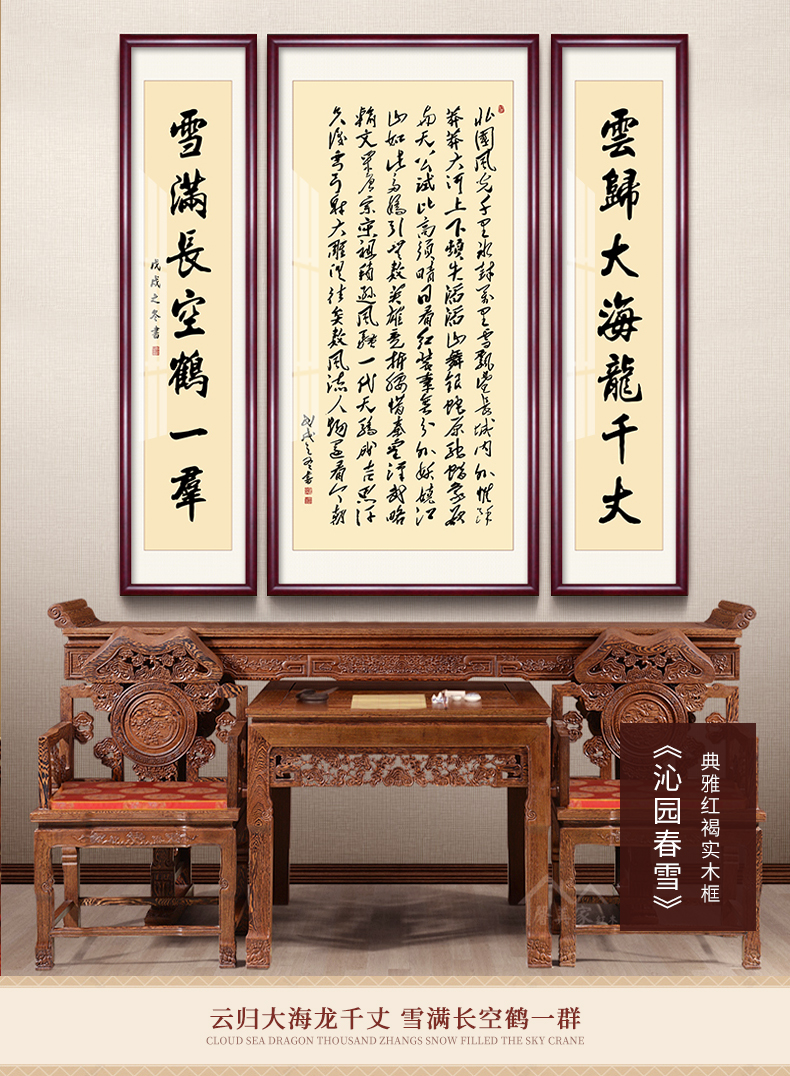 雲歸大海龍千丈
北國風光千里冰封萬里雪飄望長城内外惟餘
莽莽大河上下頓失滔滔山舞銀蛇原馳蠟象欲
与天公試比高須晴日看红装素裹分外妖嬈江
山如此多嬌引無數英雄競折腰惜秦皇漢武略
輸文采唐宗宋祖稍遜風騷一代天驕成吉思汗
只識弯弓射大雕俱往矣數風流人物還看今朝
戊戌之冬書
雪滿長空鶴一羣
戊戌之冬書
典雅红褐实木框
《沁园春雪》
云归大海龙千丈 雪满长空鹤一群
CLOUD SEA DRAGON THOUSAND ZHANGS SNOW FILLED THE SKY CRANE